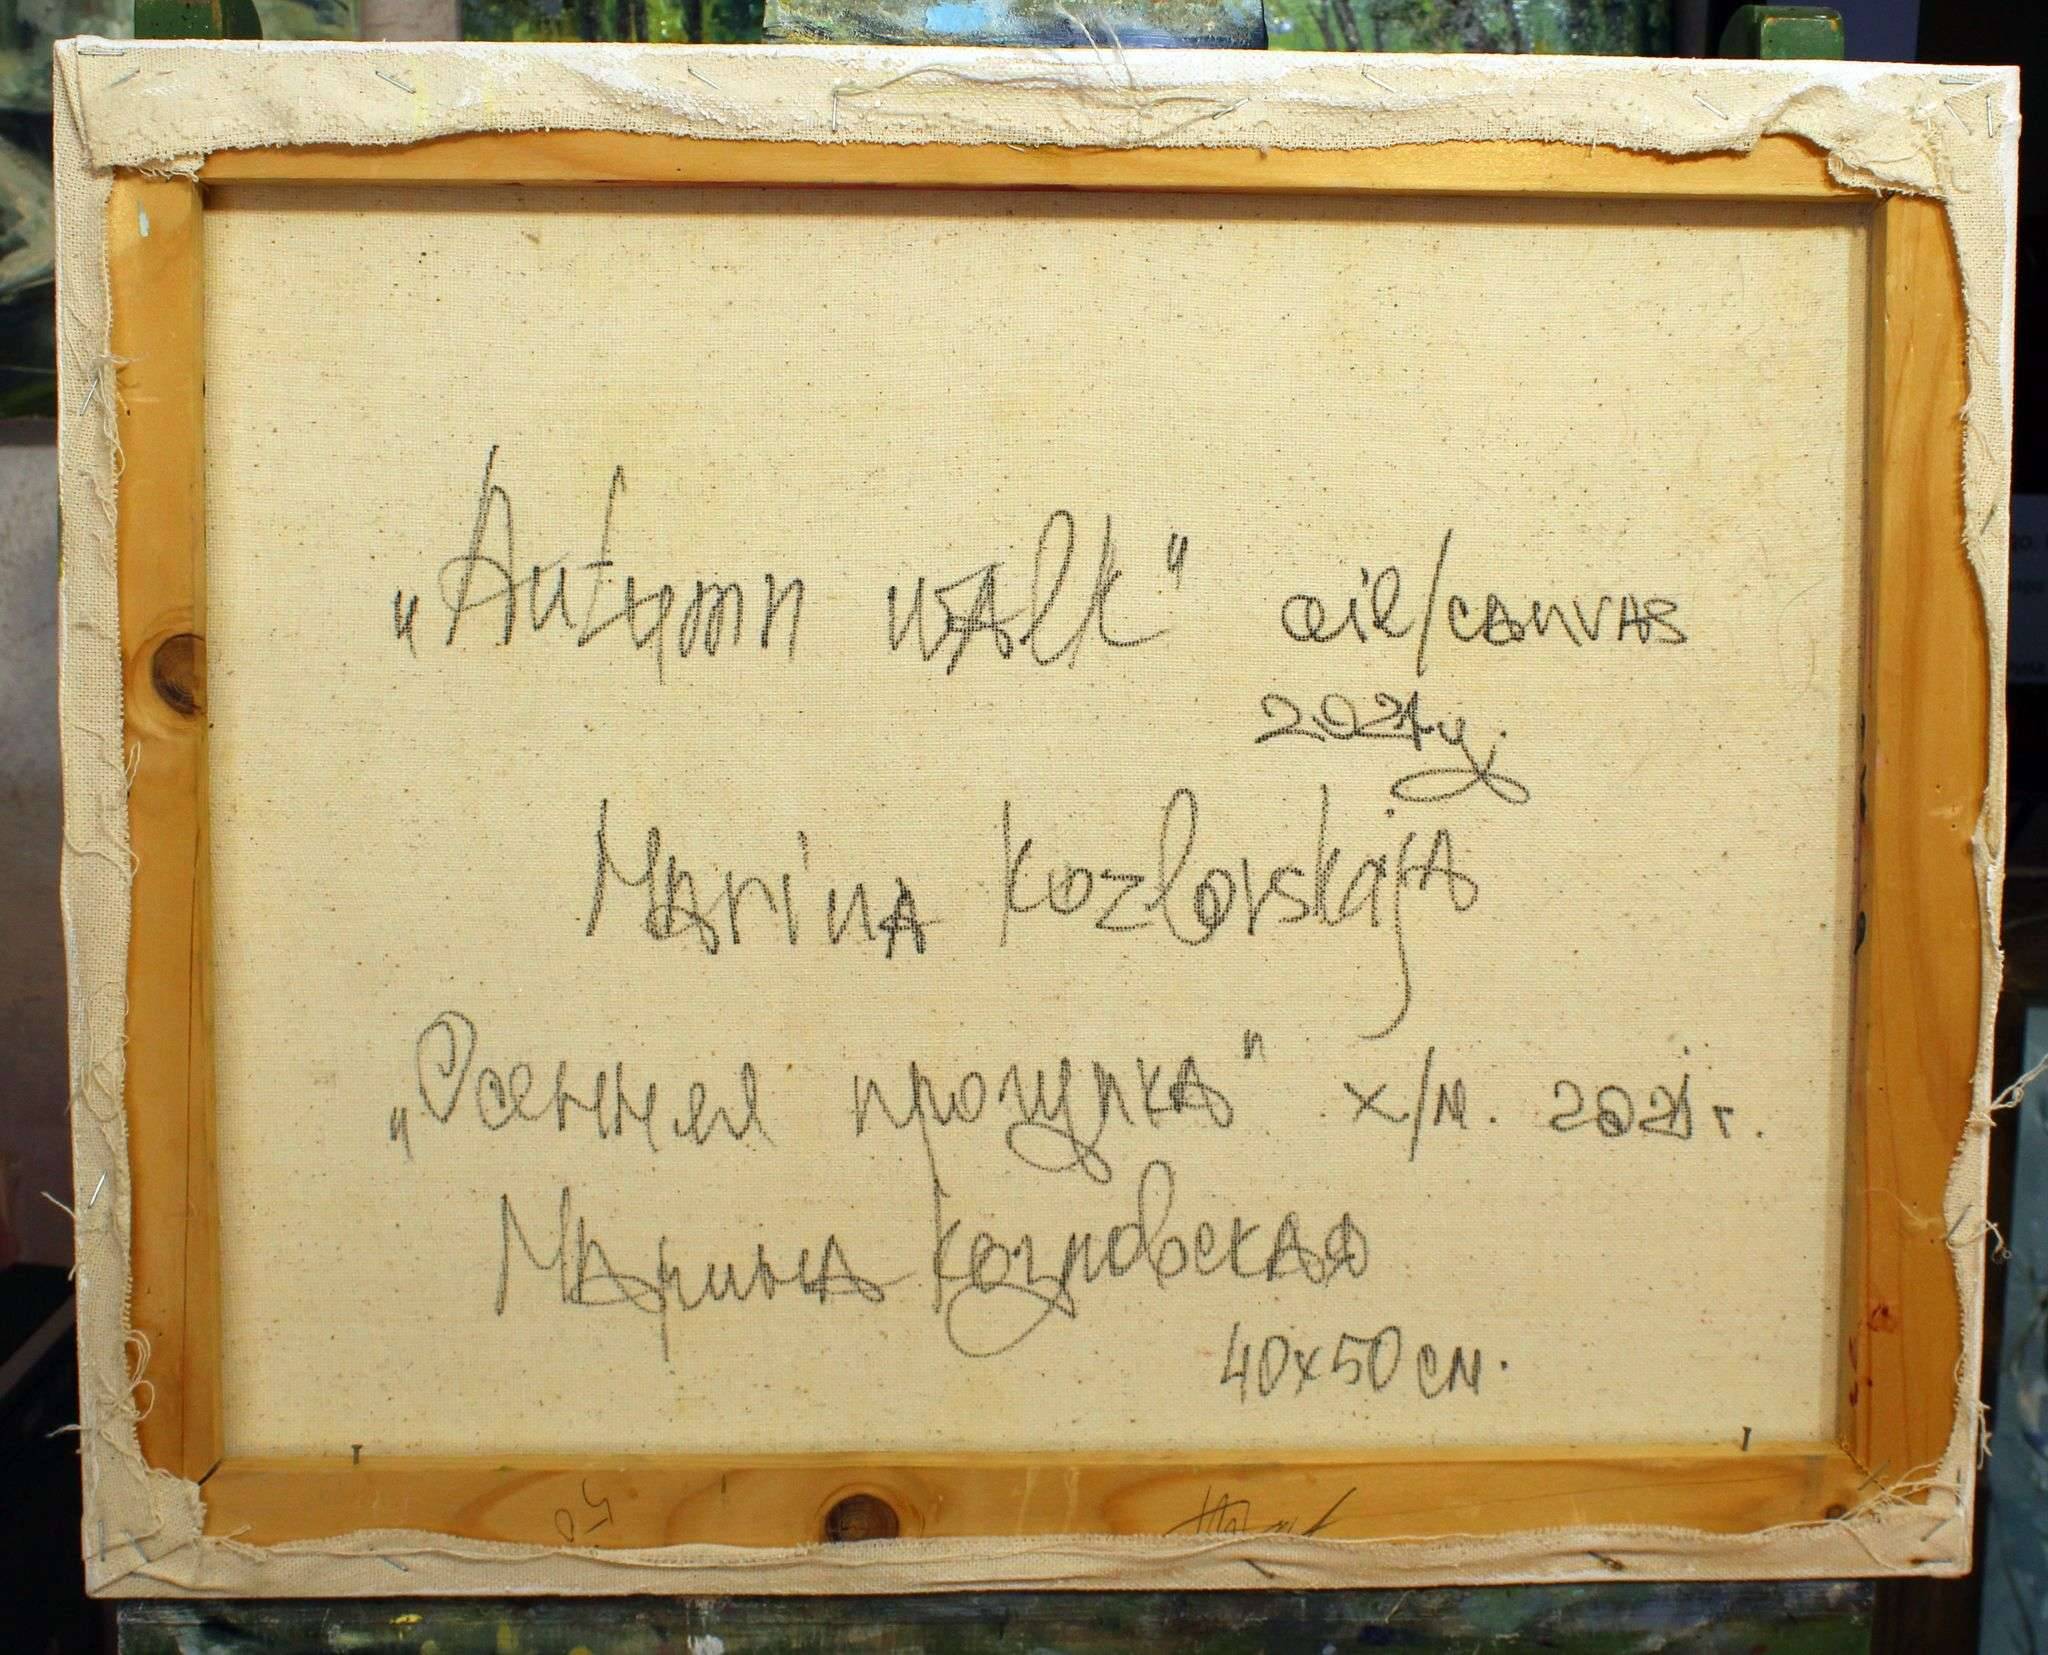 „Autymn walk" oil/canvas
2021 y.
Marina Kozlovskaja
„Осенняя прогулка" х/м. 2021 г.
Марина Козловская
40x50 см.
50